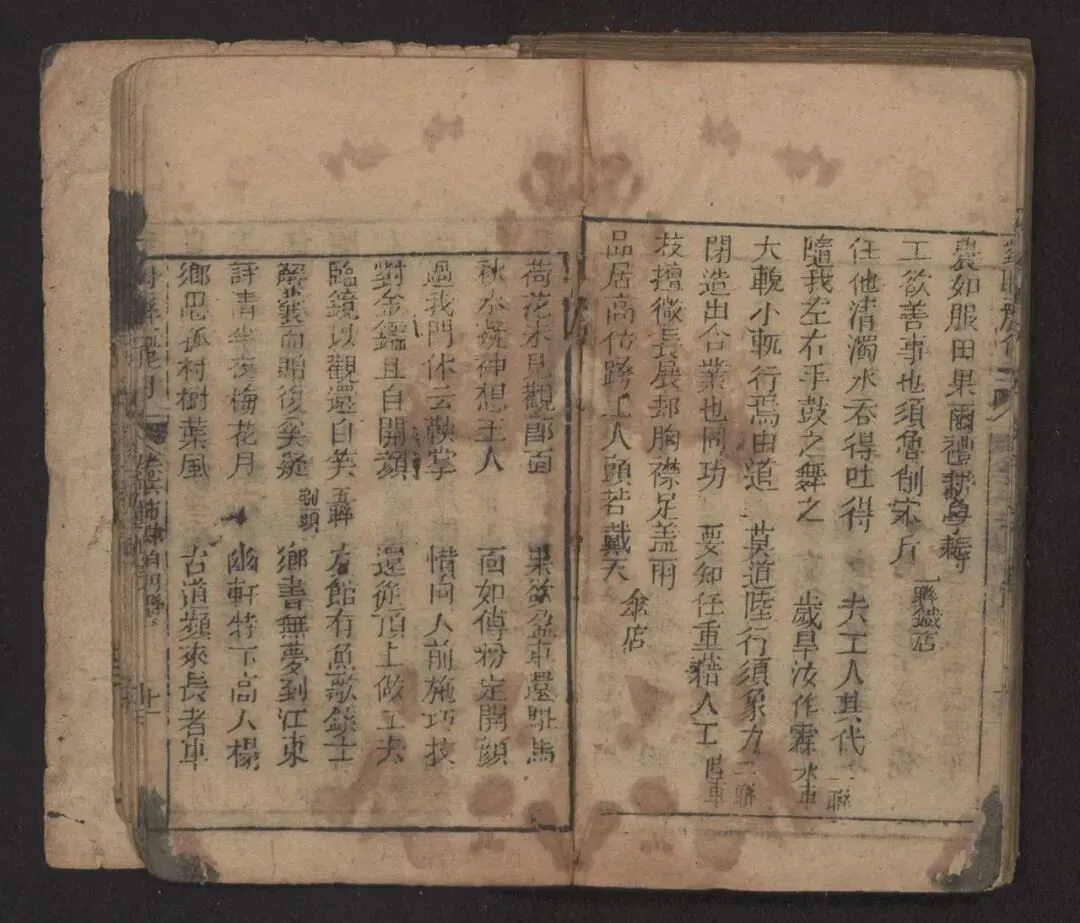 農如服田果爾禮耕學耨
工欲善事也須魯削宋斤 一聯鐵店
任他清濁水吞得吐得 夫工人其代 二聯
隨我左右手鼓之舞之 歲旱汝作霖 水車
大輗小軏行焉由道 莫道陸行須象力 二聯
閉造出合業也同功 要知任重藉人工 陸車
技擅微長展却胸襟足盖雨
品居高位跨工人頭若戴天 傘店
荷花未見觀郎面 果欲盈車還駐馬
秋水凝神想玉人 面如傅粉定開顔
過我門休云鞅掌 惜向人前施巧技
對金鑑且自開顔 還從頂上做工夫
臨鏡以觀還自笑 五聯 友館有魚歌鋏士
解囊而贈復奚疑 剃頭 鄉書無夢到江東
詩清半夜梅花月 幽軒特下高人榻
鄉思孤村樹葉風 古道頻來長者車
十一